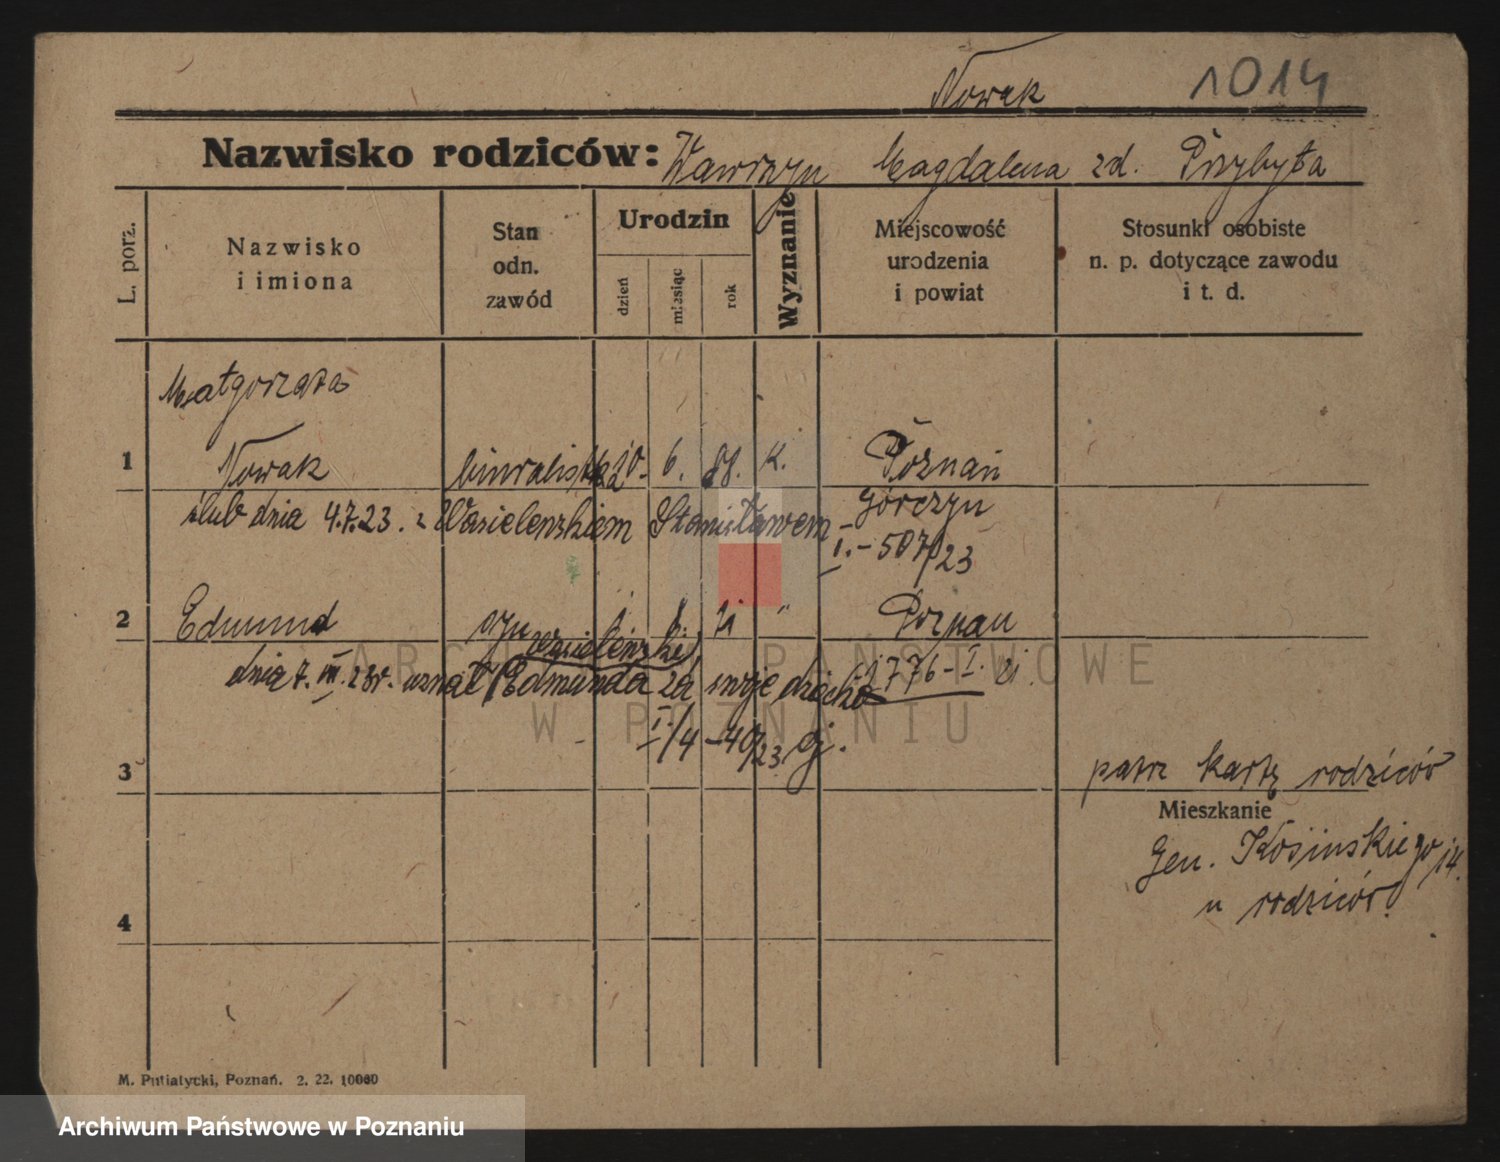 Nowak 1014
Nazwisko rodziców: Wawrzyn Magdalena zd. Przybyła
L. porz.
Nazwisko
i imiona
Stan
odn.
zawód
Urodzin
dzień
miesiąc
rok
Wyznanie
Miejscowość
urodzenia
i powiat
Stosunki osobiste
n. p. dotyczące zawodu
i t. d.
Małgorzata
1 Nowak biuralistka 20. 6. K. Poznań
ślub dnia 4.7.23. z Wasielewskiem Stanisławem Górczyn
I.-507/23
2 Edmund syn " Poznań
Wasielewski
dnia 7. III. 23r. uznał Edmunda za swoje dziecko 1776-I.
ARCHIWUM PAŃSTWOWE
W POZNANIU
I./4-40/23
3 patrz kartę rodziców
Mieszkanie
Gen. Kosińskiego 14.
u rodziców.
4
M. Putiatycki, Poznań. 2. 22. 10000
Archiwum Państwowe w Poznaniu